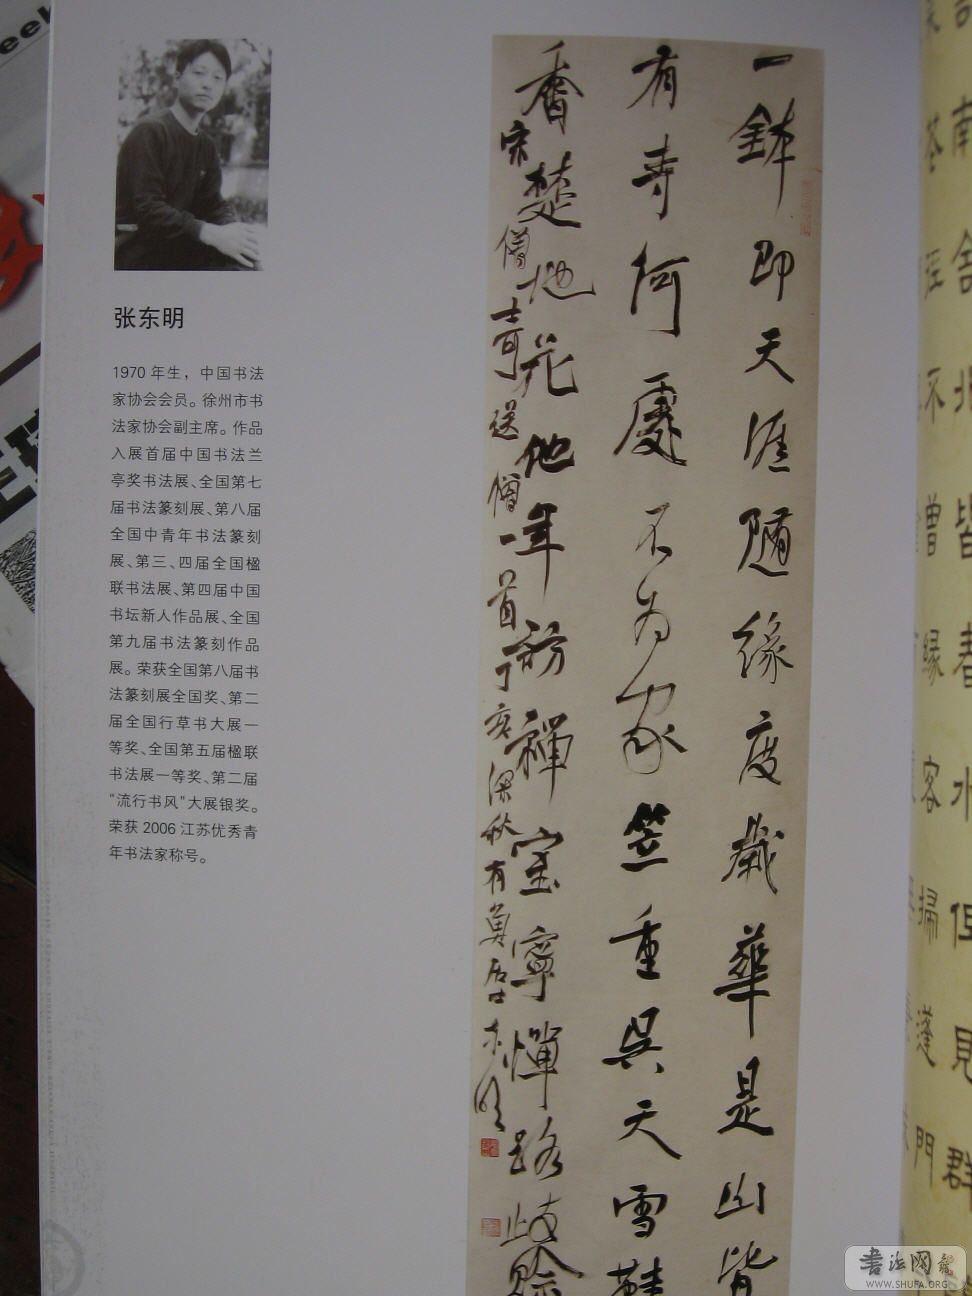 张东明
1970年生，中国书法
家协会会员。徐州市书
法家协会副主席。作品
入展首届中国书法兰
亭奖书法展、全国第七
届书法篆刻展、第八届
全国中青年书法篆刻
展、第三、四届全国楹
联书法展、第四届中国
书坛新人作品展、全国
第九届书法篆刻作品
展。荣获全国第八届书
法篆刻展全国奖、第二
届全国行草书大展一
等奖、全国第五届楹联
书法展一等奖、第二届
“流行书风”大展银奖。
荣获2006江苏优秀青
年书法家称号。
一鉢即天涯隨緣度歲華是山皆
有寺何處不為家笠重吳天雪鞋
香楚地花他年訪禪室寧憚路歧賒
宋僧士可送僧一首丁亥深秋有魚居士东明
南舍北皆春水但見群
不曾緣客掃蓬門
书法网
WWW.SHUFA.ORG